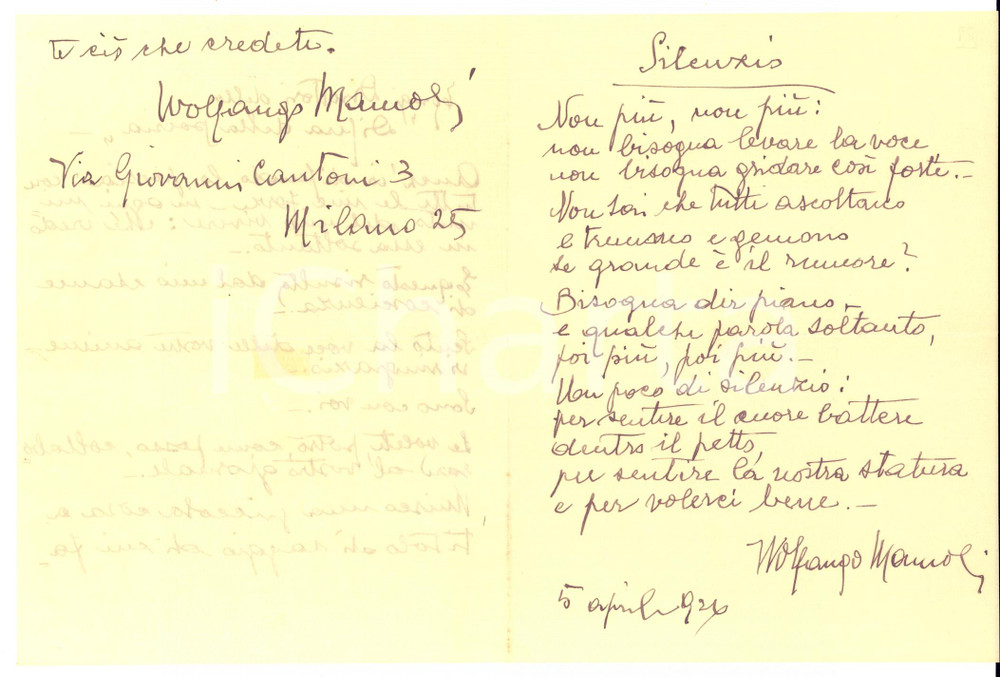 te ciò che credete.
Wolfango
Via Giovanni Cantoni 3
Milano 25
Silenzio
Non più, non più:
non bisogna levare la voce
non bisogna gridare così forte.-
Non sai che tutti ascoltano
e tremano e gemono
se grande è il rumore?
Bisogna dir piano -
e qualche parola soltanto,
poi più, poi più.-
Un poco di silenzio:
per sentire il cuore battere
dentro il petto,
per sentire la nostra statura
e per volerci bene.-
Wolfango
5 aprile